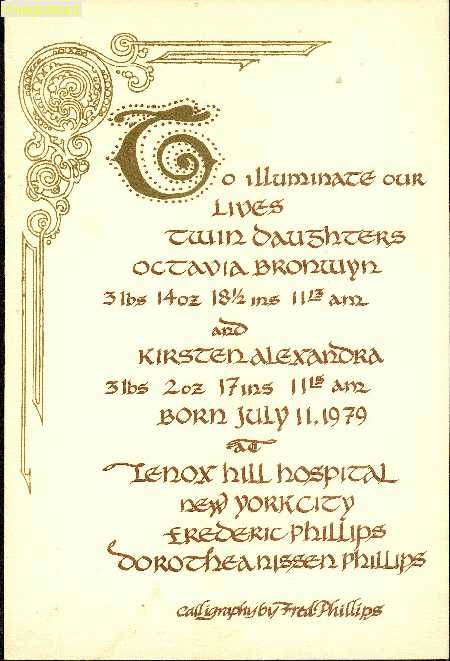 Unregistered
To illuminate our
lives
twin daughters
Octavia Bronwyn
3 lbs 14 oz 18½ ins 11¹³ am
and
Kirsten Alexandra
3 lbs 2 oz 17 ins 11¹⁵ am
Born July 11, 1979
at
Lenox Hill Hospital
New York City
Frederic Phillips
Dorothea Nissen Phillips
Calligraphy by Fred. Phillips